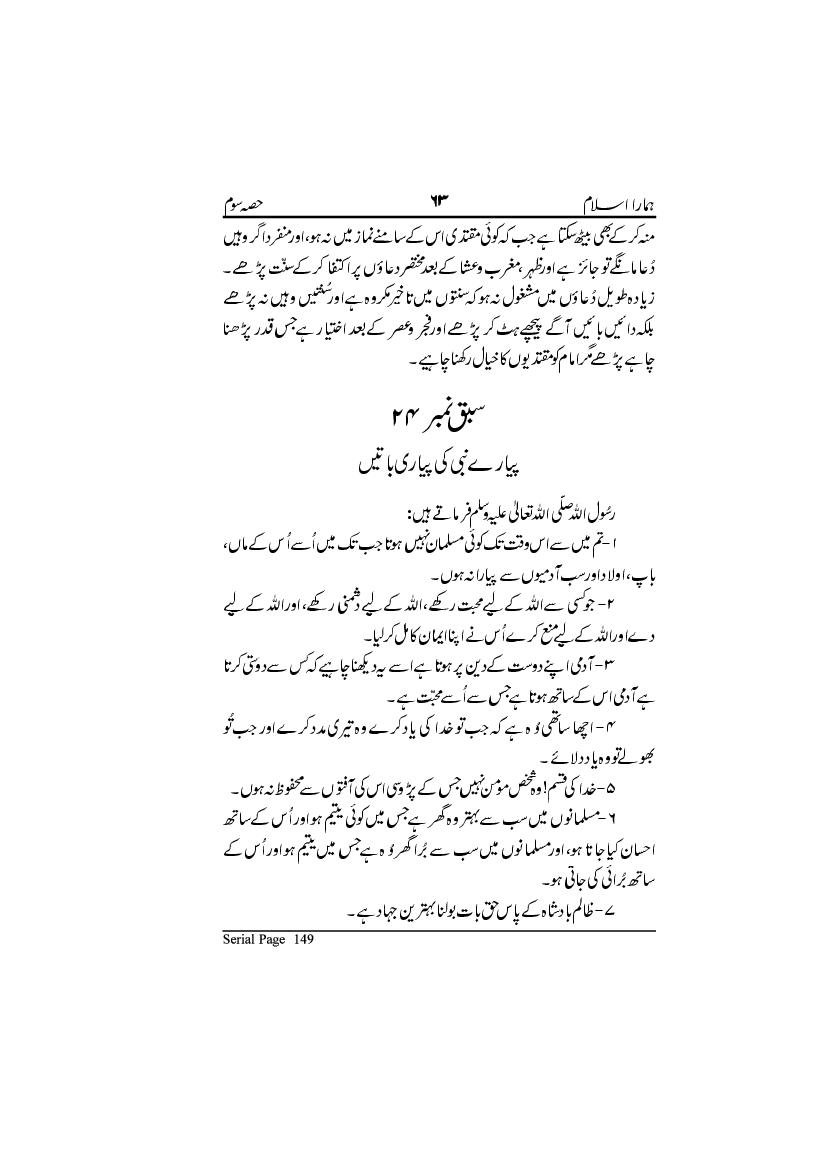 ہمارا اسلام ۶۳ حصہ سوم
منہ کر کے بھی بیٹھ سکتا ہے جب کہ کوئی مقتدی اس کے سامنے نماز میں نہ ہو، اور منفرد اگر وہیں
دُعا مانگے تو جائز ہے اور ظہر، مغرب و عشا کے بعد مختصر دعاؤں پر اکتفا کر کے سنّت پڑھے۔
زیادہ طویل دُعاؤں میں مشغول نہ ہو کہ سنتوں میں تاخیر مکروہ ہے اور سُنّتیں وہیں نہ پڑھے
بلکہ دائیں بائیں آگے پیچھے ہٹ کر پڑھے اور فجر و عصر کے بعد اختیار ہے جس قدر پڑھنا
چاہے پڑھے مگر امام کو مقتدیوں کا خیال رکھنا چاہیے۔
سبق نمبر ۲۴
پیارے نبی کی پیاری باتیں
رسُول اللہ صلّی اللہ تعالیٰ علیہ وسلم فرماتے ہیں:
۱- تم میں سے اس وقت تک کوئی مسلمان نہیں ہوتا جب تک میں اُسے اُس کے ماں،
باپ، اولاد اور سب آدمیوں سے پیارا نہ ہوں۔
۲- جو کسی سے اللہ کے لیے محبت رکھے، اللہ کے لیے دشمنی رکھے، اور اللہ کے لیے
دے اور اللہ کے لیے منع کرے اُس نے اپنا ایمان کامل کر لیا۔
۳- آدمی اپنے دوست کے دین پر ہوتا ہے اسے یہ دیکھنا چاہیے کہ کس سے دوستی کرتا
ہے آدمی اس کے ساتھ ہوتا ہے جس سے اُسے محبّت ہے۔
۴- اچھا ساتھی وُہ ہے کہ جب تو خدا کی یاد کرے وہ تیری مدد کرے اور جب تُو
بھولے تو وہ یاد دلائے۔
۵- خدا کی قسم! وہ شخص مومن نہیں جس کے پڑوسی اس کی آفتوں سے محفوظ نہ ہوں۔
۶- مسلمانوں میں سب سے بہتر وہ گھر ہے جس میں کوئی یتیم ہو اور اُس کے ساتھ
احسان کیا جاتا ہو، اور مسلمانوں میں سب سے بُرا گھر وُہ ہے جس میں یتیم ہو اور اُس کے
ساتھ بُرائی کی جاتی ہو۔
۷- ظالم بادشاہ کے پاس حق بات بولنا بہترین جہاد ہے۔
Serial Page 149